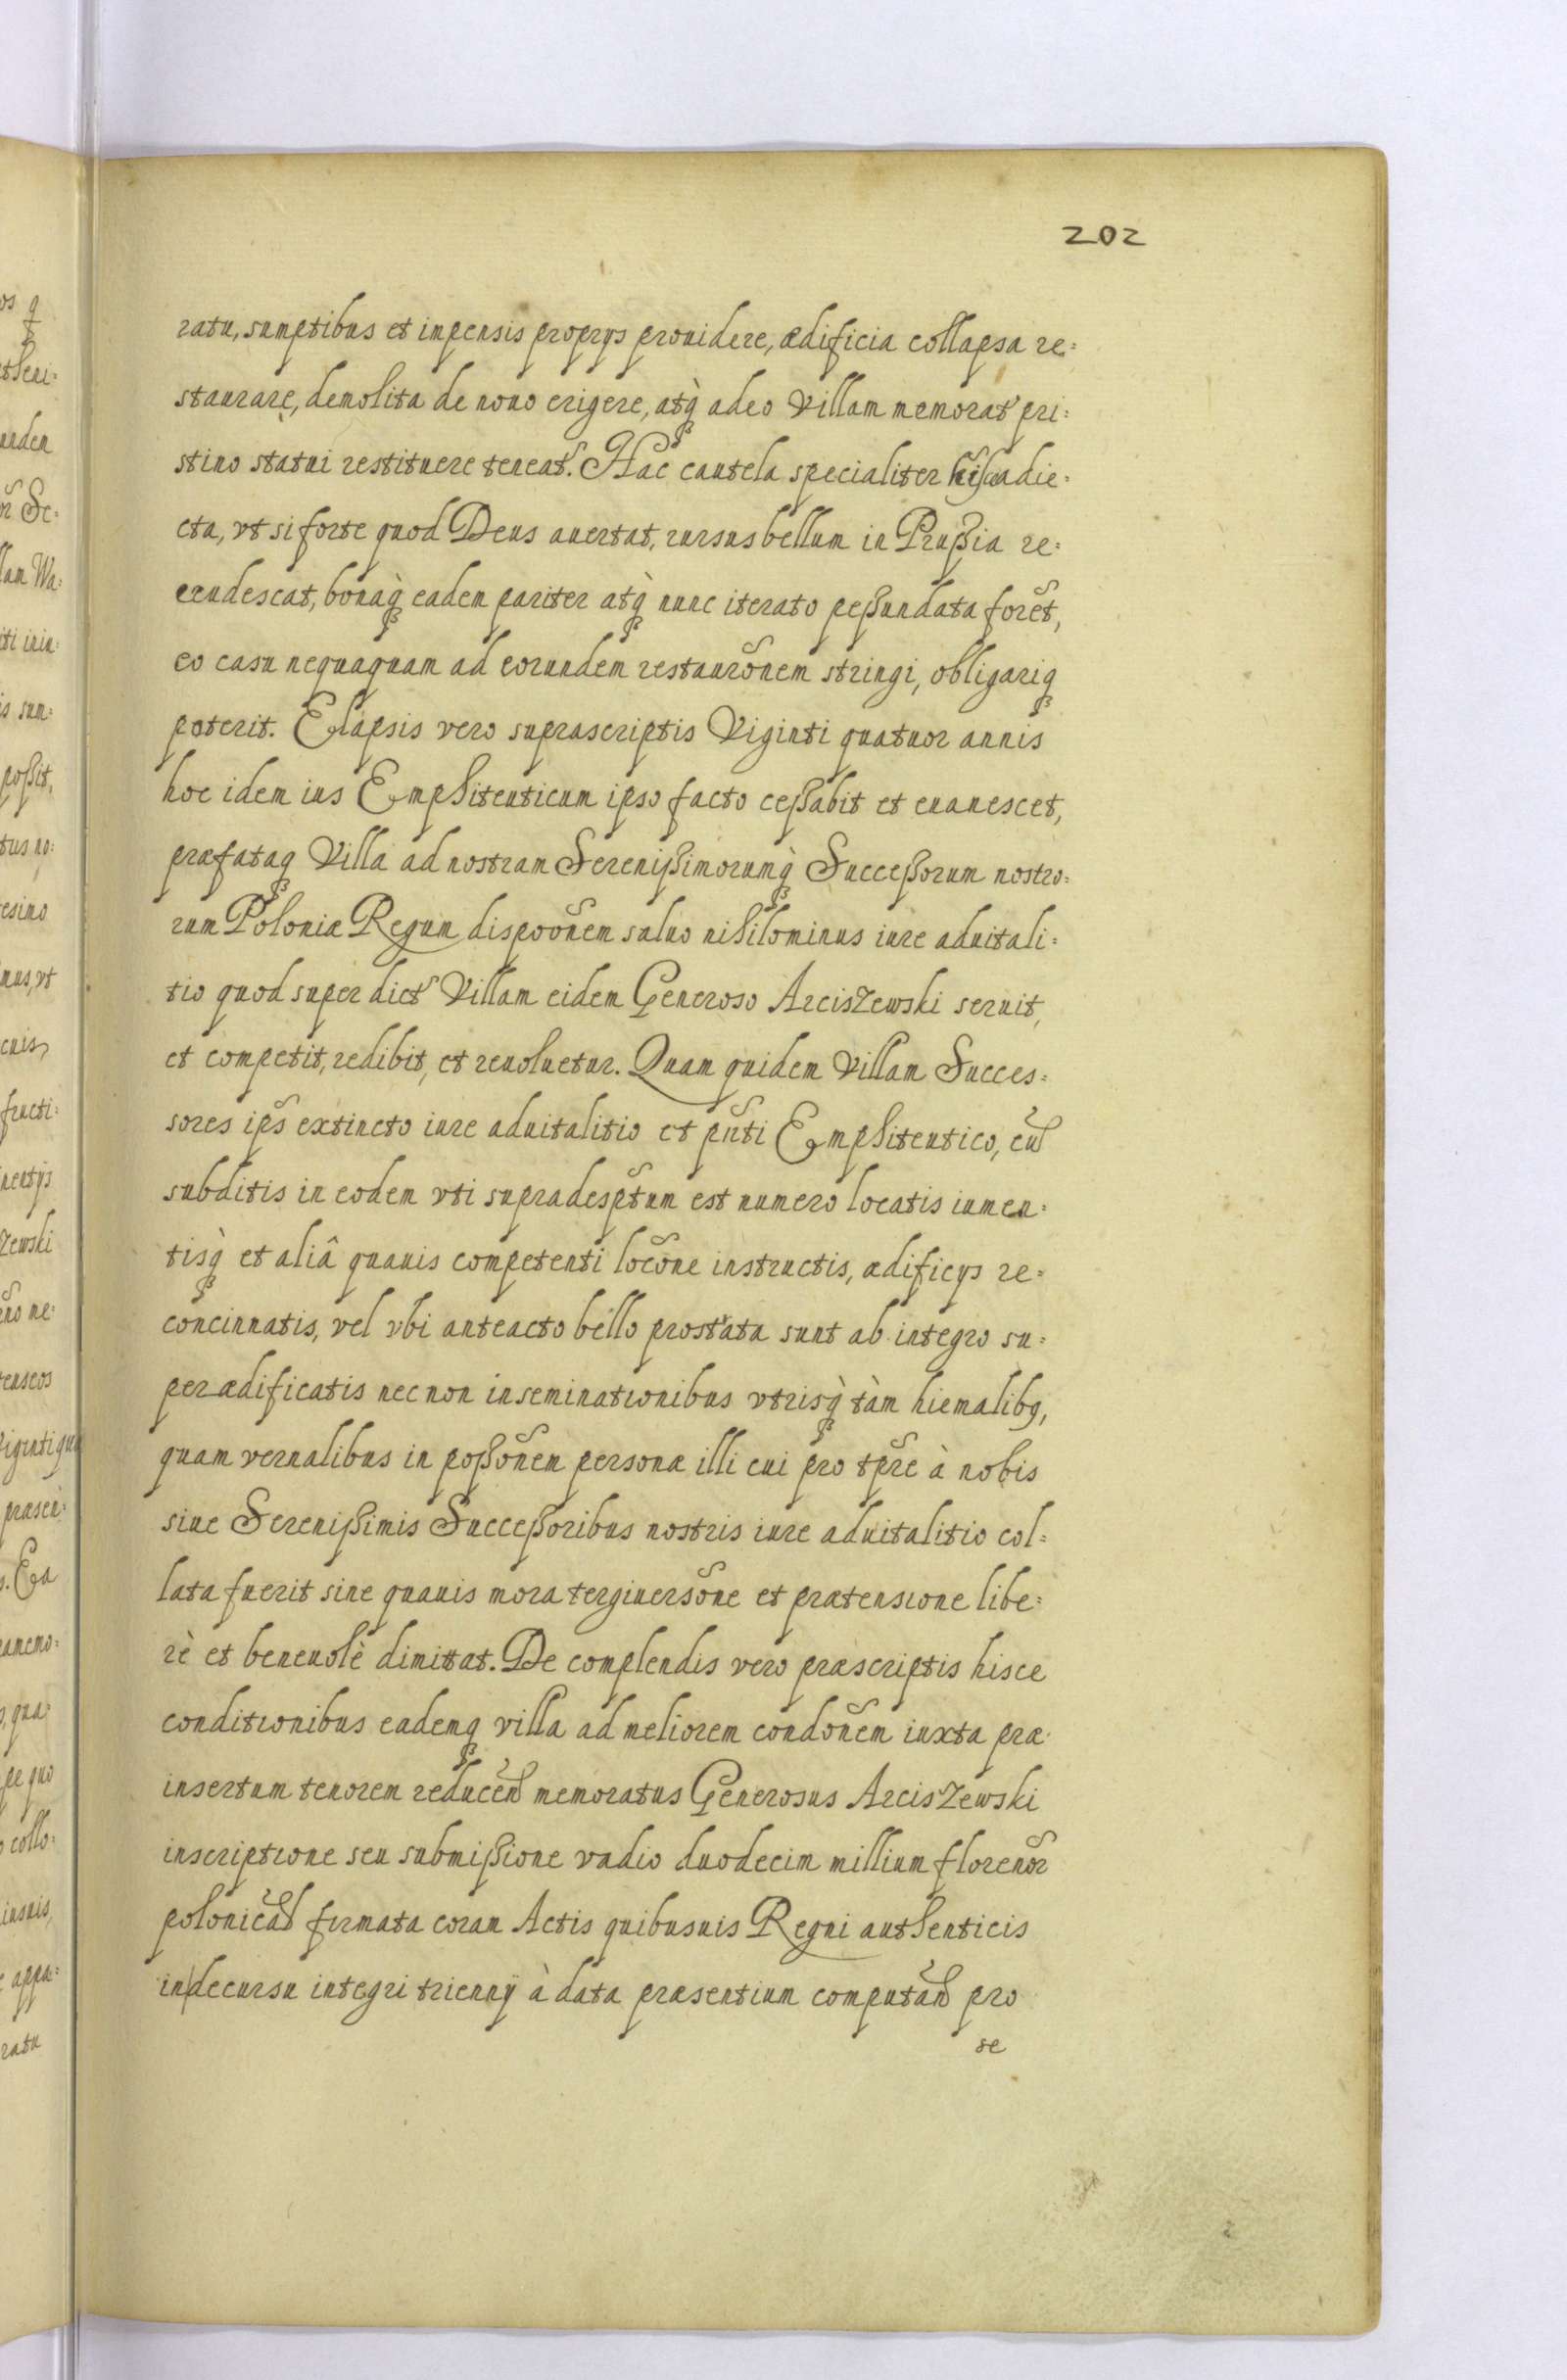 202
ratu, sumptibus et impensis proprys prouidere, ædificia collapsa re=
staurare, demolita de nouo erigere, atq̀ꝫ adeo Villam memorat̃ pri=
stino statui restituere teneat̃. Hac cautela specialiter hisce adie=
cta, vt si forte quod Deus auertat, rursus bellum in Prußia re=
crudescat, bonaq̀ꝫ eadem pariter atq̀ꝫ nunc iterato peßundata forẽt,
eo casu nequaquam ad eorundem restaurõnem stringi, obligariqꝫ
poterit. Elapsis vero suprascriptis Viginti quatuor annis
hoc idem ius Emphiteuticum ipso facto ceßabit et euanescet,
præfataqꝫ Villa ad nostram Serenißimorumq̀ꝫ Succeßorum nostro=
rum Poloniæ Regum dispoõnem saluo nihilominus iure aduitali=
tio quod super dict̃ Villam eidem Generoso Arciszewski seruit,
et competit, redibit, et reuoluetur. Quam quidem Villam Succes=
sores ip̃s extincto iure aduitalitio et pñti Emphiteutico, cũ
subditis in eodem vti supradesp̃tum est numero locatis iumen=
tisq̀ꝫ et aliâ quauis competenti locõne instructis, ædificys re=
concinnatis, vel vbi anteacto bello prostrata sunt ab integro su=
perædificatis nec non inseminationibus vtrisq̀ꝫ tàm hiemalibꝰ,
quam vernalibus in poßõnem personæ illi cui pro tp̃re à nobis
siue Serenißimis Succeßoribus nostris iure aduitalitio col=
lata fuerit sine quauis mora tergiuersõne et prætensione libe=
rè et beneuolè dimittat. De complendis vero præscriptis hisce
conditionibus eademqꝫ villa ad meliorem condõnem iuxta præ=
insertum tenorem reducend̃ memoratus Generosus Arciszewski
inscriptione seu submißione vadio duodecim millium florenoꝝ
polonical̃ firmata coram Actis quibusuis Regni authenticis
in decursu integri triennÿ à data præsentium computand̃ pro
se